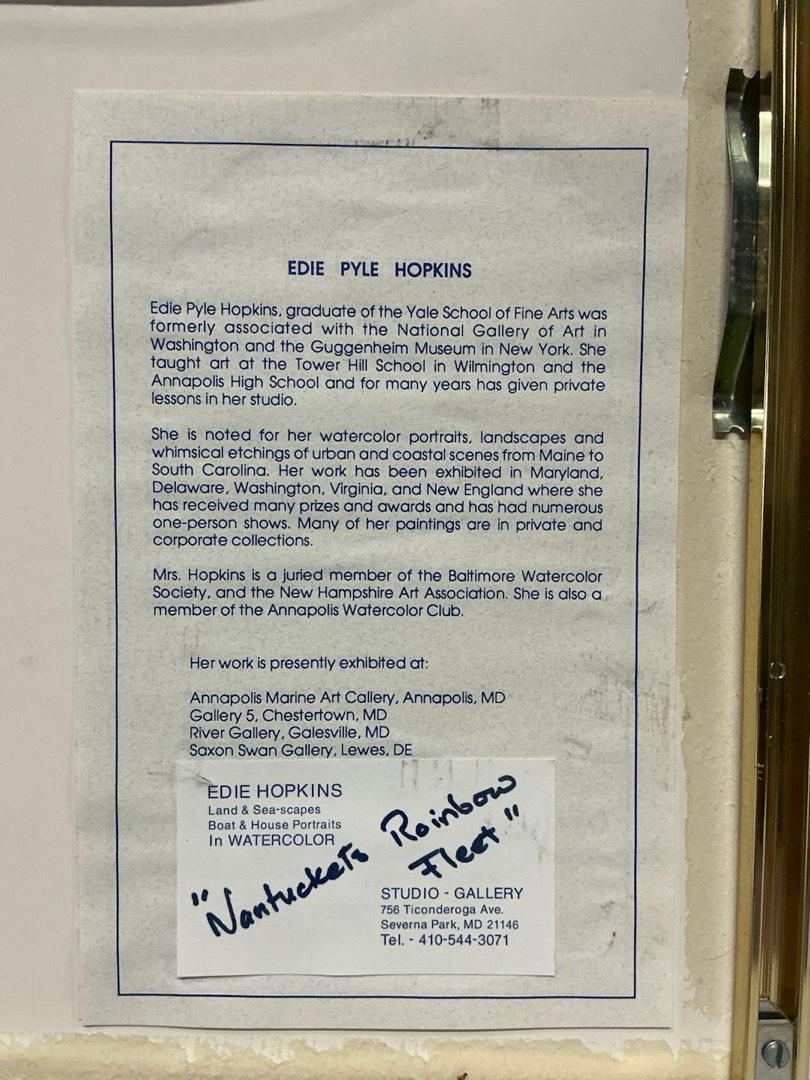 EDIE PYLE HOPKINS
Edie Pyle Hopkins, graduate of the Yale School of Fine Arts was
formerly associated with the National Gallery of Art in
Washington and the Guggenheim Museum in New York. She
taught art at the Tower Hill School in Wilmington and the
Annapolis High School and for many years has given private
lessons in her studio.
She is noted for her watercolor portraits, landscapes and
whimsical etchings of urban and coastal scenes from Maine to
South Carolina. Her work has been exhibited in Maryland,
Delaware, Washington, Virginia, and New England where she
has received many prizes and awards and has had numerous
one-person shows. Many of her paintings are in private and
corporate collections.
Mrs. Hopkins is a juried member of the Baltimore Watercolor
Society, and the New Hampshire Art Association. She is also a
member of the Annapolis Watercolor Club.
Her work is presently exhibited at:
Annapolis Marine Art Callery, Annapolis, MD
Gallery 5, Chestertown, MD
River Gallery, Galesville, MD
Saxon Swan Gallery, Lewes, DE
EDIE HOPKINS
Land & Sea-scapes
Boat & House Portraits
In WATERCOLOR
"Nantuckets Rainbow
Fleet"
STUDIO - GALLERY
756 Ticonderoga Ave.
Severna Park, MD 21146
Tel. - 410-544-3071